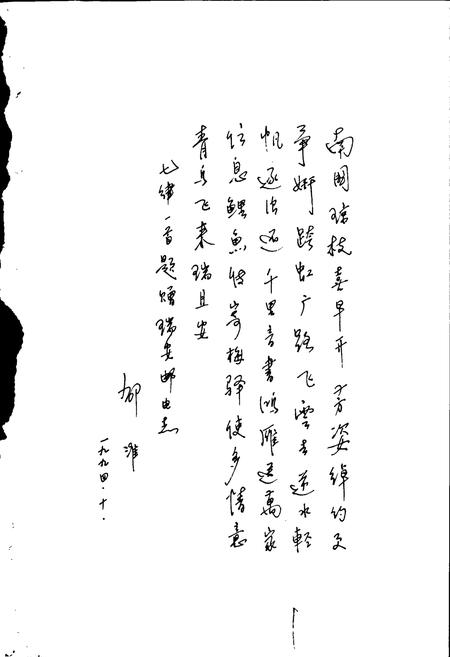 南國琼枝喜早开芳姿绰约又
争妍跨虹广路飞雲去逆水輕
帆逐浪还千里音書鸿雁送萬家
信息鲤魚传寄梅驿使多情意
青鸟飞来瑞且安
七律一首题赠瑞安邮电志
一九九四·十·